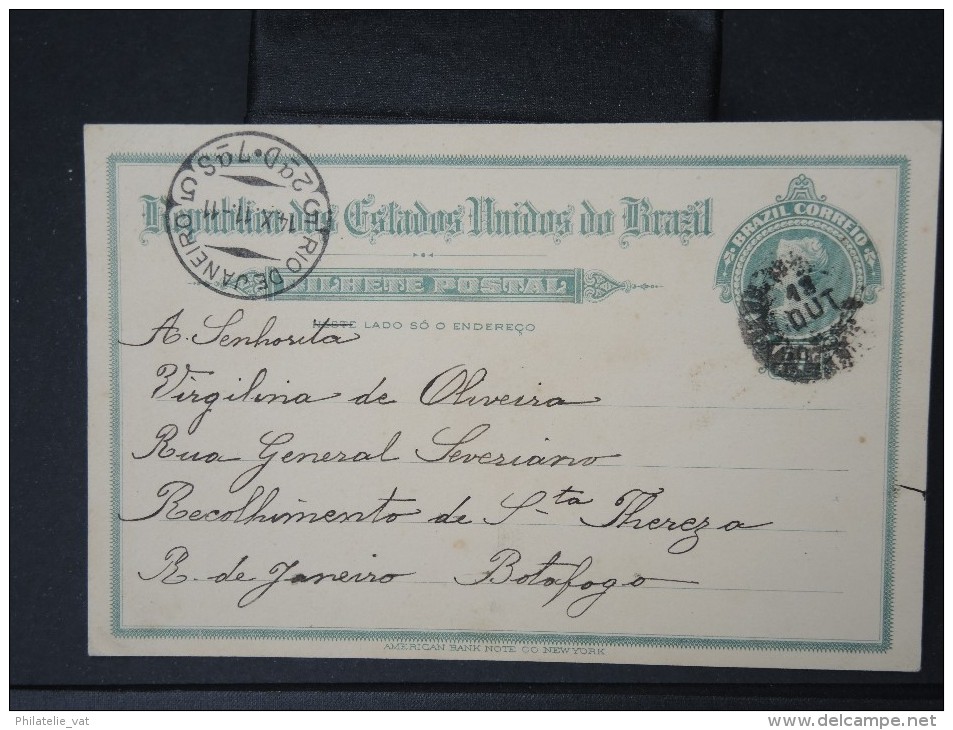 Republica dos Estados Unidos do Brazil
BILHETE POSTAL
NESTE LADO SÓ O ENDEREÇO
BRAZIL CORREIO
RIO DE JANEIRO
14 X 11
2ªD•7ªS
OUT
A. Senhorita
Virgilina de Oliveira
Rua General Severiano
Recolhimento de Sta Thereza
R. de Janeiro Botafogo
AMERICAN BANK NOTE CO NEW YORK
Philatelie_vat
www.delcampe.net